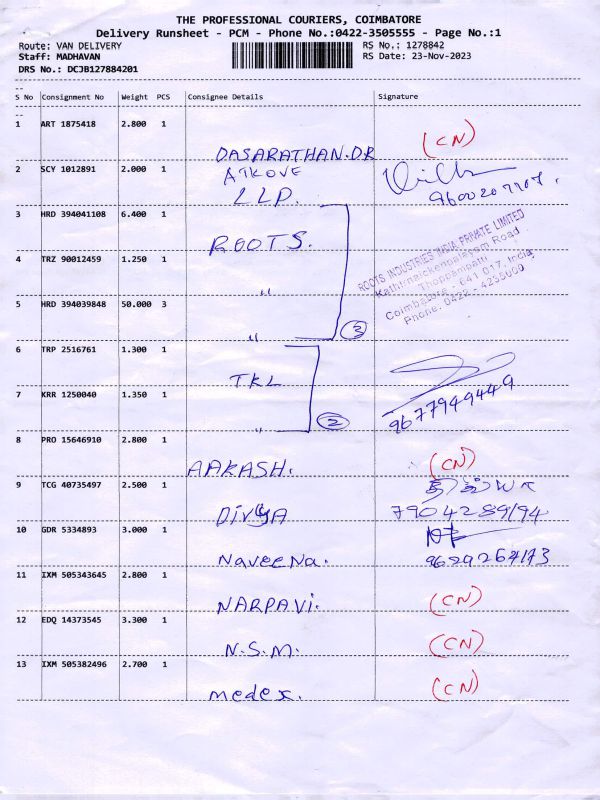 THE PROFESSIONAL COURIERS, COIMBATORE
Delivery Runsheet - PCM - Phone No.:0422-3505555 - Page No.:1
Route: VAN DELIVERY RS No.: 1278842
Staff: MADHAVAN RS Date: 23-Nov-2023
DRS No.: DCJB127884201
S No Consignment No Weight PCS Consignee Details Signature
1 ART 1875418 2.800 1
DASARATHAN.DR (CN)
2 SCY 1012891 2.000 1
ATKOVE
LLP.
3 HRD 394041108 6.400 1
ROOTS.
ROOTS INDUSTRIES INDIA PRIVATE LIMITED
Kathirnaickenpalayam Road
Thoppampatti
Coimbatore - 641 017, India
Phone: 0422 - 4235000
4 TRZ 90012459 1.250 1
"
5 HRD 394039848 50.000 3
" 3
6 TRP 2516761 1.300 1
TKL
9677949449
7 KRR 1250040 1.350 1
" 2
8 PRO 15646910 2.800 1
AAKASH. (CN)
9 TCG 40735497 2.500 1
DIVYA 7904289194
10 GDR 5334893 3.000 1
NaveeNa.
11 IXM 505343645 2.800 1
NARPAVI. (CN)
12 EDQ 14373545 3.300 1
N.S.M. (CN)
13 IXM 505382496 2.700 1
medex. (CN)